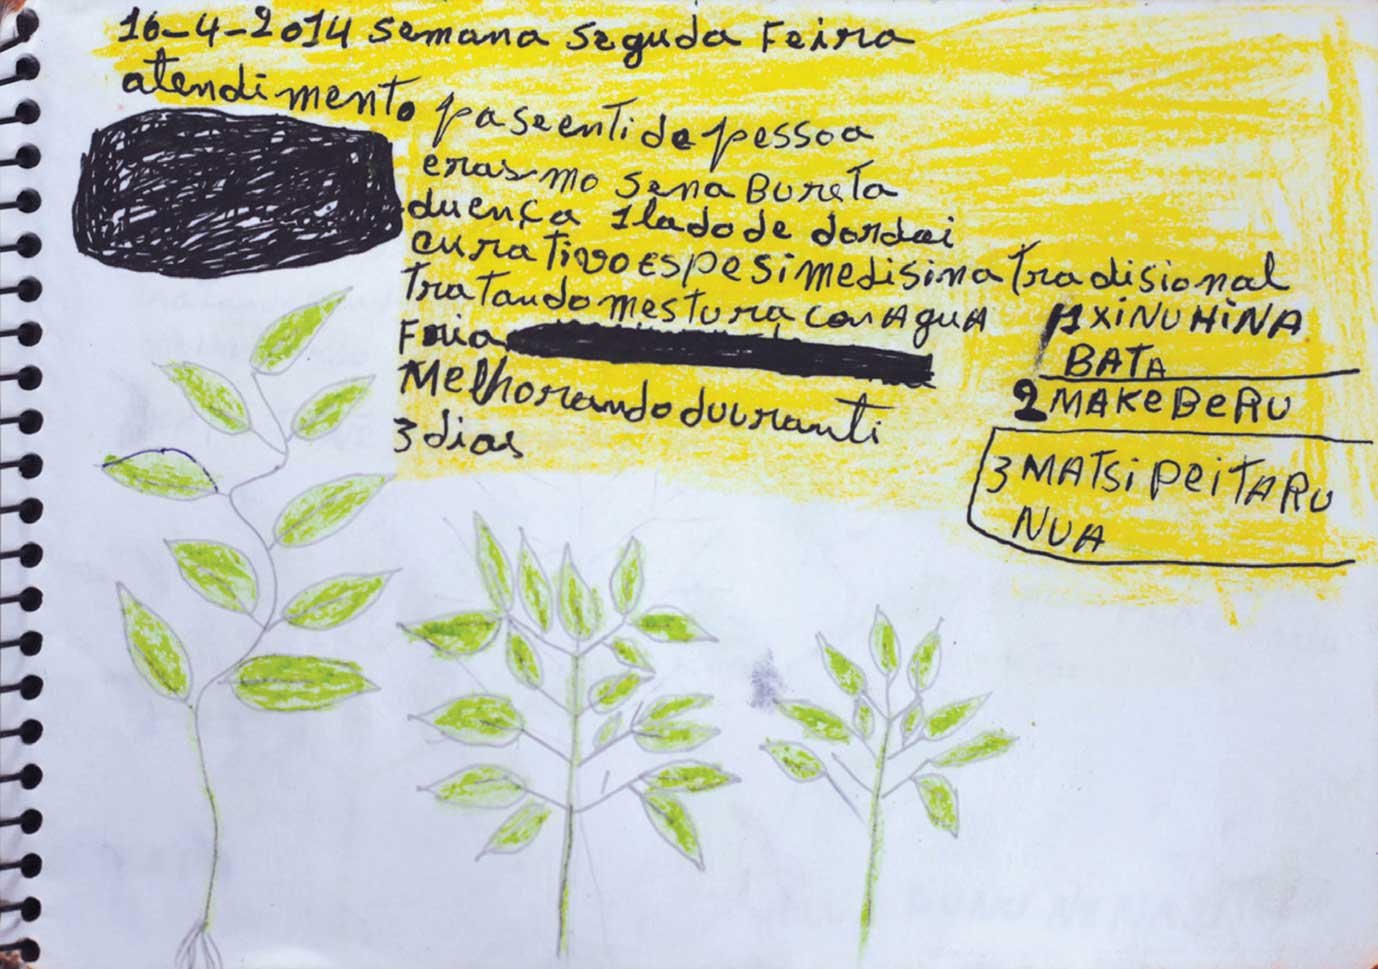 16-4-2014 semana seguda Feira
atendimento paseenti de pessoa
erasmo sena Bureta
duença 1 lado de
curativo espesi medisina tradisional
tratando mestura con AguA
Fria
Melhorando duuranti
3 dias
1 XiNU HiNA
BATA
2 MAKE BERU
3 MATSi PEiTARU
NUA